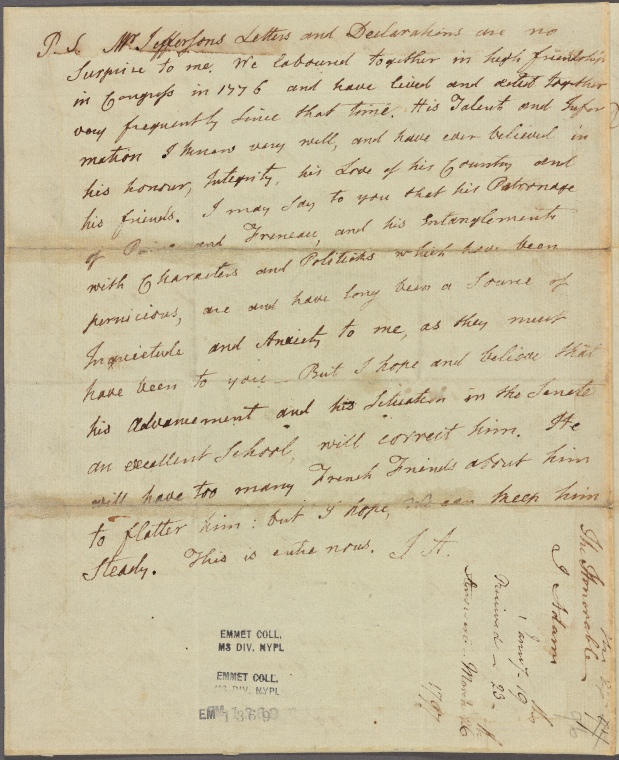 P. S. Mr Jeffersons Letters and Declarations are no
Surprise to me. We laboured together in high friendship
in Congress in 1776 and have lived and acted together
very frequently since that time. His Talent and Infor
mation I know very well, and have ever believed in
his honour, Integrity, his Love of his Country and
his friends. I may say to you that his Patronage
of Paine and Freneau, and his Entanglements
with Characters and Politicks which have been
pernicious, are and have long been a Source of
Inquietude and Anxiety to me, as they must
have been to you — But I hope and believe that
his Advancement and his Situation in the Senate
an excellent School, will correct him. He
will have too many French Friends about him
to flatter him: but I hope, We can keep him
Steady. This is entre nous. J A.
The Honorable
J Adams
Janry. 19
Received — 23 —
Answered March
1797
EMMET COLL.
MS DIV. NYPL
EMMET COLL.
MS DIV. NYPL
EM